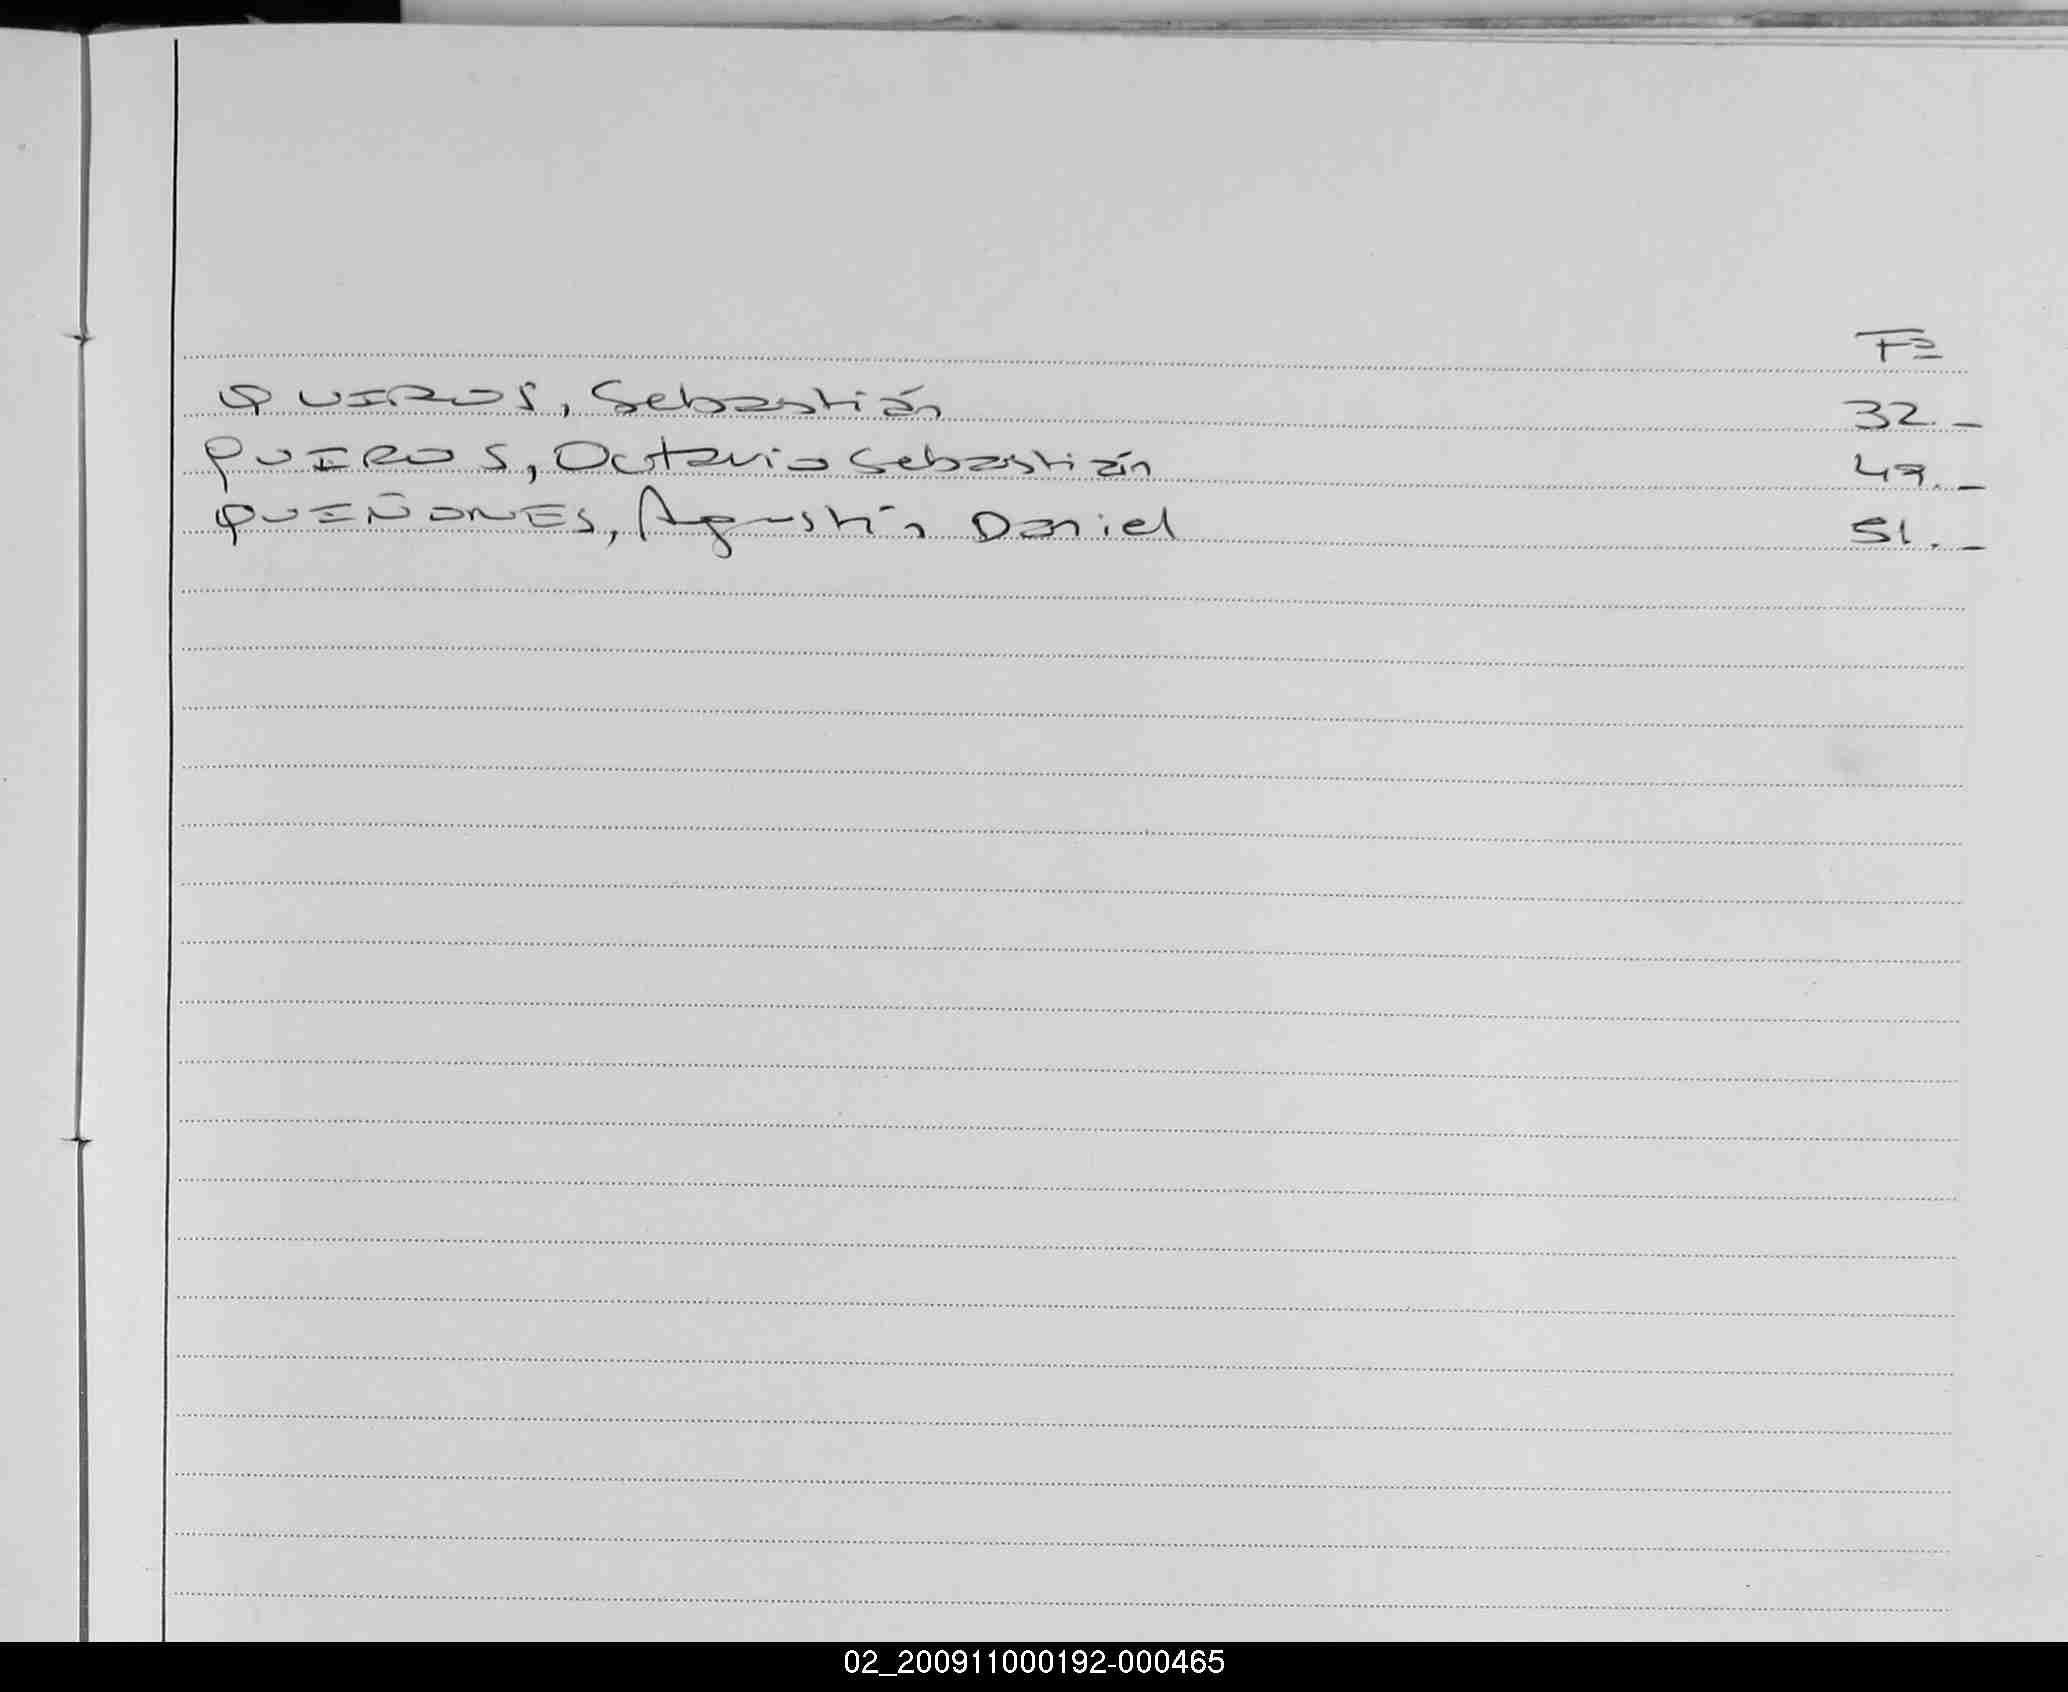 Fº
QUIROS, Sebastián 32.-
QUIROS, Octavio Sebastián 49.-
QUIÑONES, Agustín Daniel 51.-
02_200911000192-000465